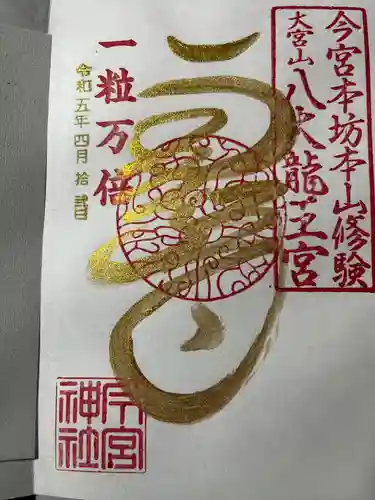 今宮本坊本山修験
大宮山 八大龍王宮
一粒万倍
令和五年四月拾弐日
今宮神社